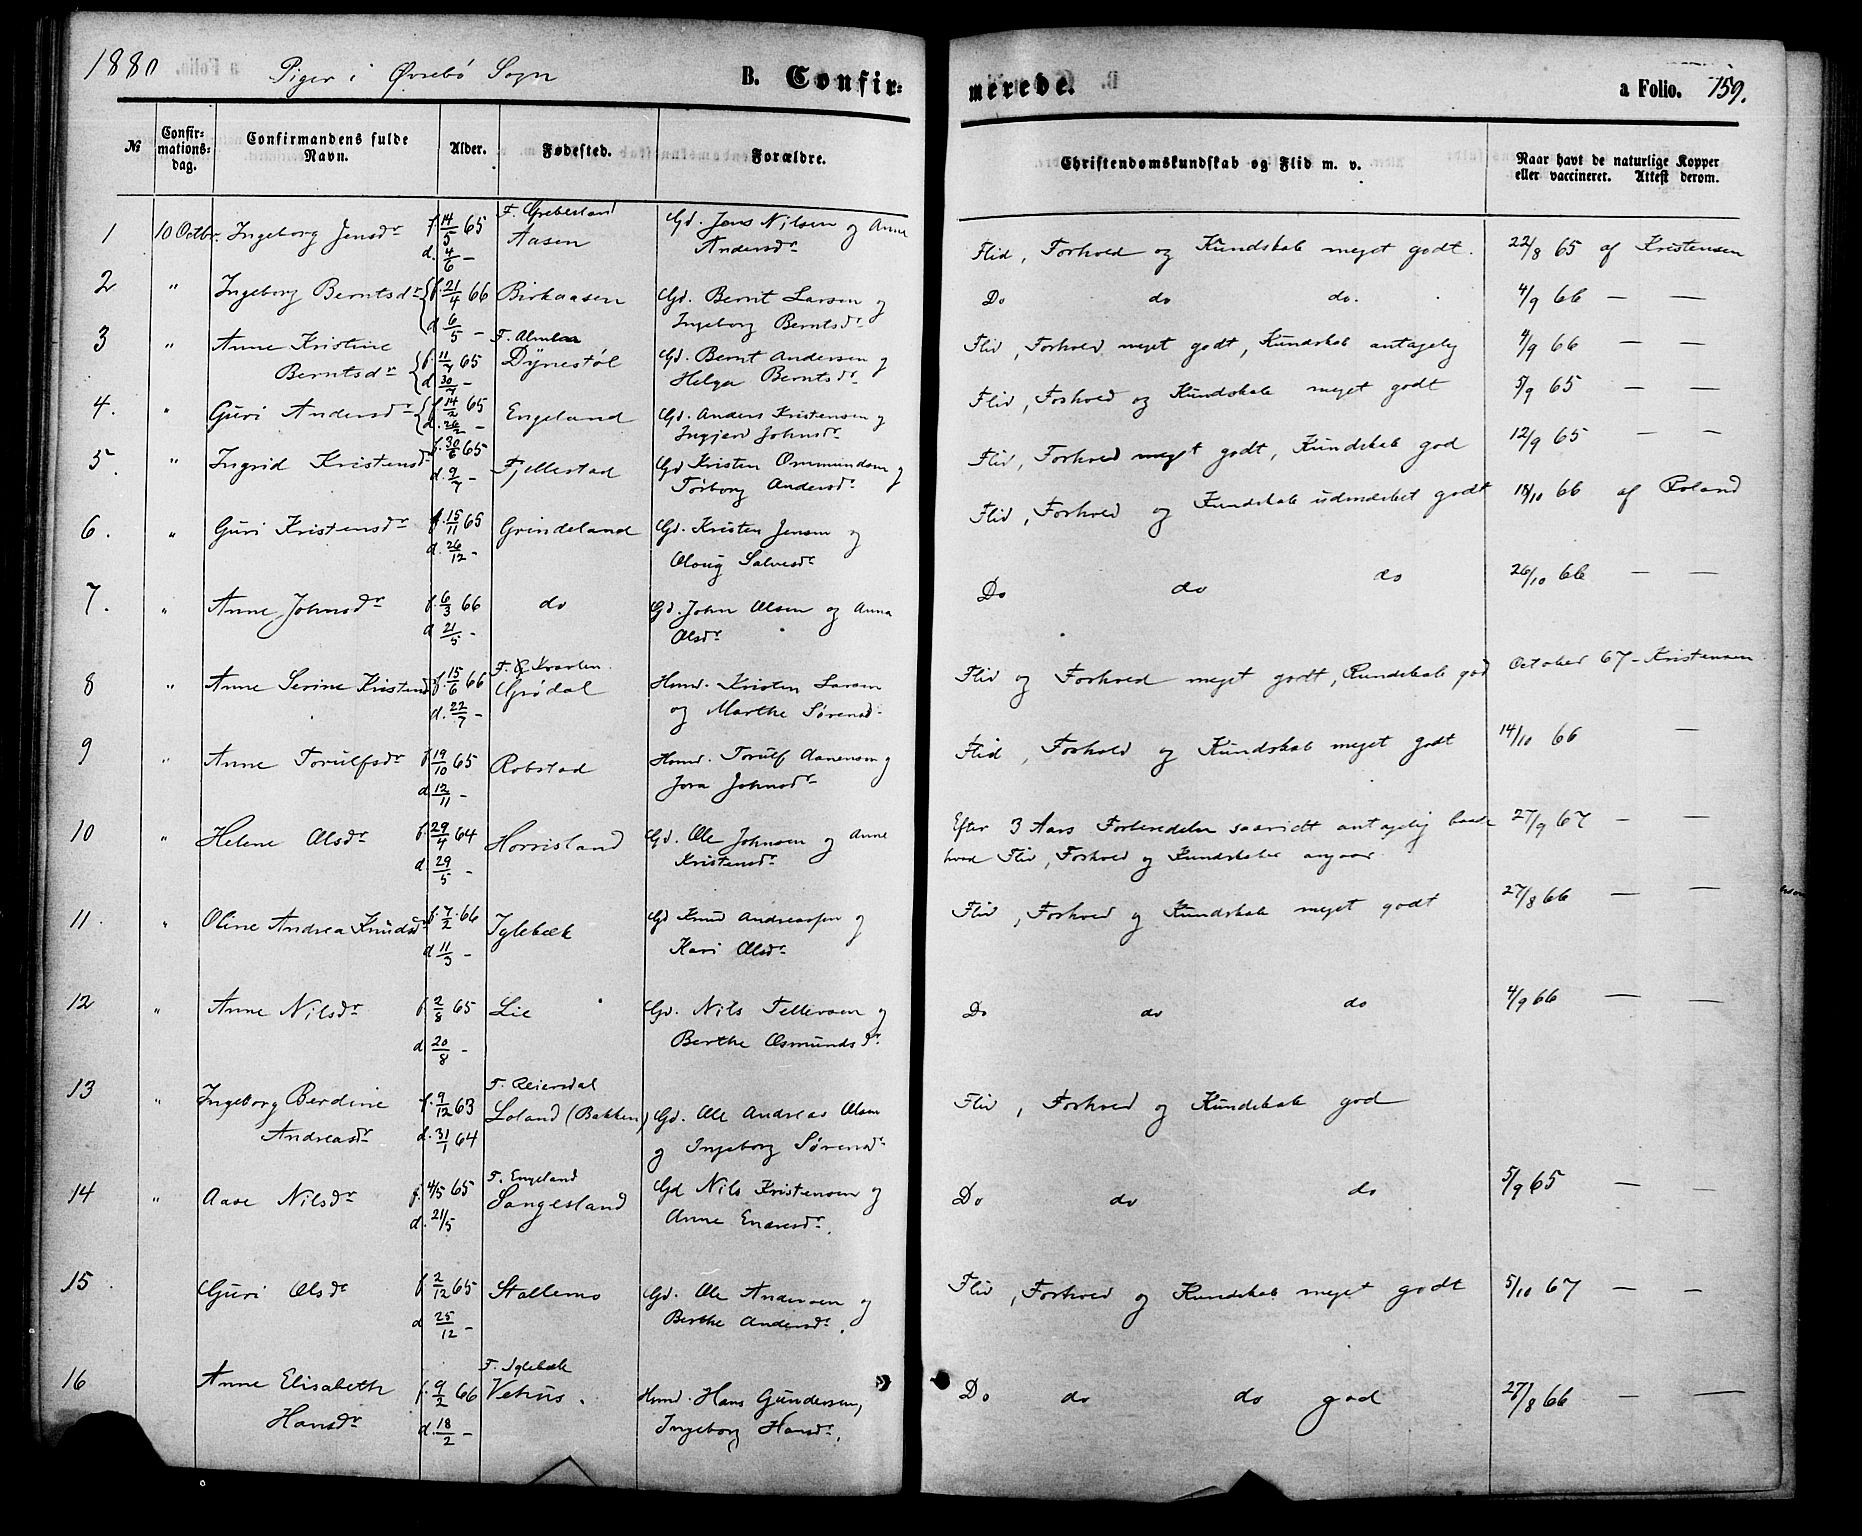 1880 Piger i Øvrebø Sogn B. Confirmerede. a Folio. 159.
№ Confirmationsdag. Confirmandens fulde Navn. Alder. Fødested. Forældre. Christendomskundskab og Flid m. v. Naar havt de naturlige Kopper eller vaccineret. Attest derom.
1 10 Octbr. Ingeborg Jensdr f. 14/5 65 F. Greibesland Gd. Jens Nilsen og Anne Flid, Forhold og Kundskab meget godt. 22/8 65 af Kristensen
d. 4/6 — Aasen Andersdr
2 " Ingeborg Berntsdr f. 21/4 66 Birkaasen Gd. Bernt Larsen og Do do do. 4/9 66 — —
d. 6/5 — Ingeborg Berntsdr
3 " Anne Kristine f. 11/7 65 F. Gd. Bernt Andersen og Flid, Forhold meget godt, Kundskab antagelig 4/9 66 — —
Berntsdr d. 30/7 — Dynestøl Helga Berntsdr
4. " Guri Andersdr f. 14/2 65 Engeland Gd. Anders Kristensen og Flid, Forhold og Kundskab meget godt 5/9 65 — —
d. 26/2 — Ingjerd Johnsdr
5. " Ingrid Kristensdr f. 30/6 65 Fjellestad Gd Kristen Osmundsen og Flid, Forhold meget godt, Kundskab god 12/9 65 — —
d. 9/7 — Torborg Andersdr
6. " Guri Kristensdr f. 15/11 65 Grindeland Gd. Kristen Jensen og Flid, Forhold og Kundskab udmerket godt 18/10 66 af Roland
d. 26/12 - Oloug Salvesdr
7. " Anne Johnsdr f. 6/3 66 do Gd. John Olsen og Anna Do do do 26/10 66 — —
d 21/5 - Olsdr
8 " Anne Serine Kristensd f. 15/6 66 F. Kvarten. Husmd. Kristen Larsen Flid og Forhold meget godt, Kundskab god October 67 - Kristensen
d. 22/7 — Grødal og Marthe Sørensd.
9 " Anne Torulfsdr f. 19/10 65 Robstad Husmd. Torulf Aanensen og Flid, Forhold og Kundskab meget godt 14/10 66 —
d. 12/11 — Jora Johnsdr
10 " Helene Olsdr f. 29/4 64 Horrisland Gd. Ole Johnsen og Anne Efter 3 Aars Forberedelse saavidt antagelig baade 27/9 67 — —
d. 29/5 - Kristensdr hvad Flid, Forhold og Kundskaber angaar.
11. " Oline Andrea Knudsdr f. 7/2 66 Iglebæk Gd Knud Andreassen og Flid, Forhold og Kundskab meget godt 27/8 66 — —
d 11/3 — Kari Olsdr
12 " Anne Nilsdr f. 2/8 65 Lie Gd. Nils Tellevsen og Do do do 4/9 66 — —
d 20/8 — Berthe Osmundsdr.
13 " Ingeborg Berdine f. 9/12 63 F. Reiersdal Gd. Ole Andreas Olsen Flid, Forhold og Kundskab god
Andreasdr d. 31/1 64 Loland (Bakken) og Ingeborg Sørensdr
14 " Aase Nilsdr f. 4/5 65 F. Engeland Gd Nils Kristensen og Do do do 5/9 65 — —
d. 21/5 Sangesland Anne Endresdr.
15. Guri Olsdr f. 2/12 65 Stallemo Gd. Ole Andersen og Flid, Forhold og Kundskab meget godt 5/10 67 — —
d 25/12 — Berthe Andersdr.
16 Anne Elisabeth f. 9/2 66 F. Iglebæk Husmd. Hans Gundersen, Do do do god 27/8 66 — —
Hansdr d. 18/2 — Vehus. Ingeborg Hansdr.